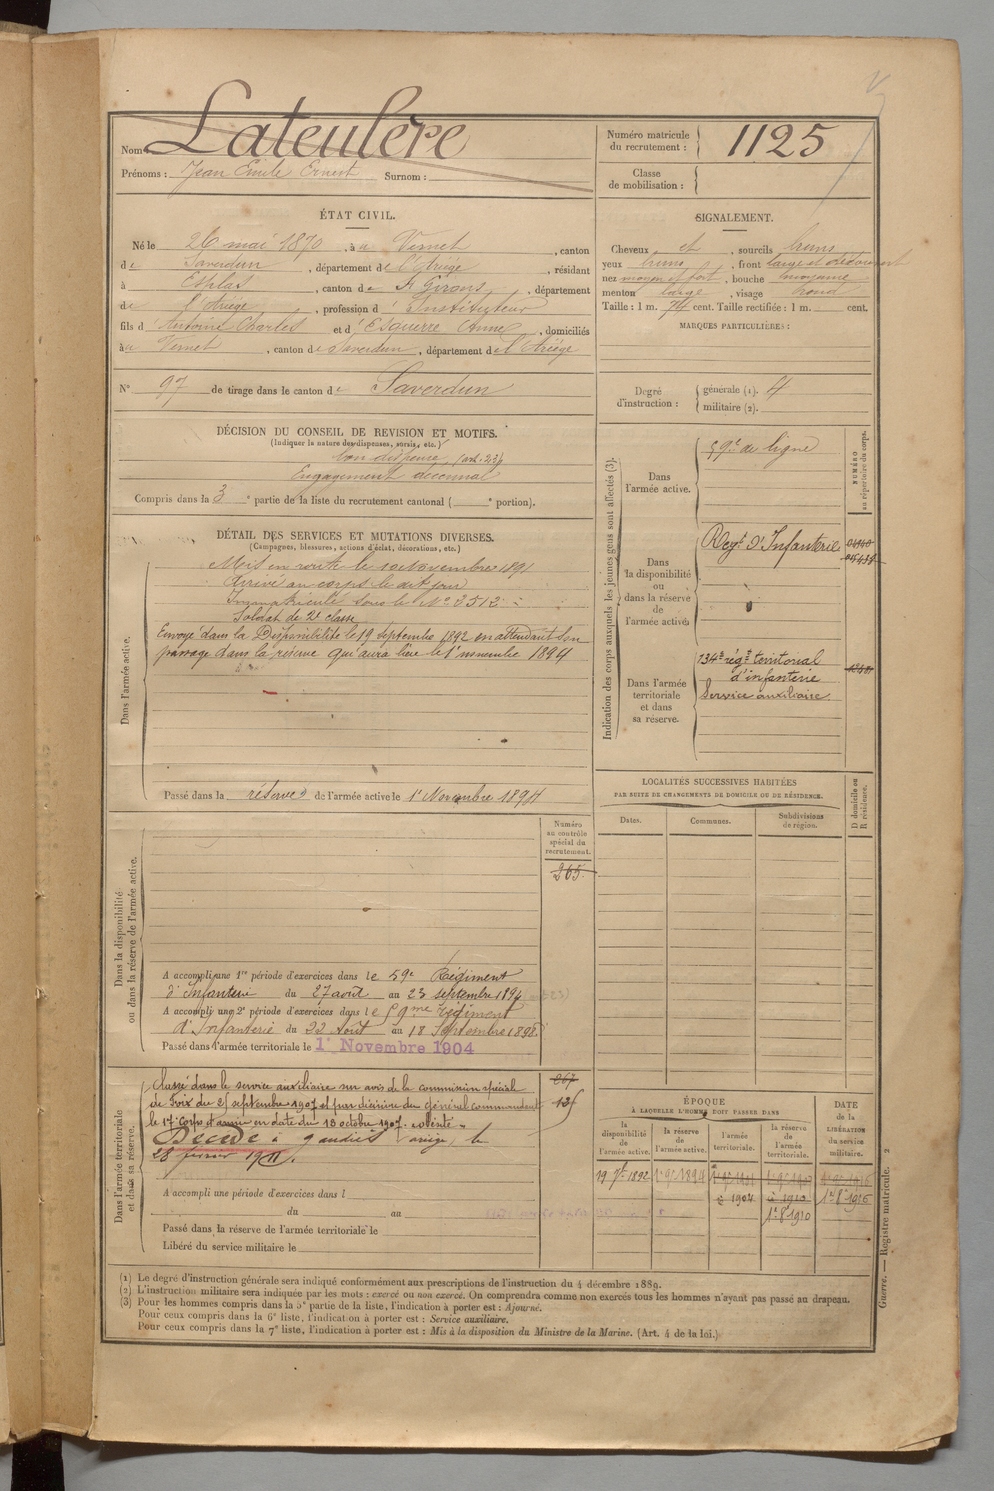 Nom : Lateulère
Prénoms : Jean Emile Ernest Surnom :
Numéro matricule du recrutement : 1125
Classe de mobilisation :
ÉTAT CIVIL.
Né le 26 mai 1870, à u Vernet, canton
de Saverdun, département de l'Ariège, résidant
à Esplas, canton de St Girons, département
de l'Ariège, profession d'Instituteur
fils d'Antoine Charles et d'Esquerre Anne, domiciliés
à u Vernet, canton de Saverdun, département de l'Ariège
N° 97 de tirage dans le canton de Saverdun
SIGNALEMENT.
Cheveux et, sourcils bruns
yeux bruns, front large et découvert
nez moyen et fort, bouche moyenne
menton large, visage rond
Taille : 1 m. 74 cent. Taille rectifiée : 1 m. cent.
MARQUES PARTICULIÈRES :
Degré d'instruction : générale (1). 4
militaire (2).
DÉCISION DU CONSEIL DE REVISION ET MOTIFS.
(Indiquer la nature des dispenses, sursis, etc.)
bon dispensé (art. 23)
Engagement décennal
Compris dans la 3e partie de la liste du recrutement cantonal ( e portion).
DÉTAIL DES SERVICES ET MUTATIONS DIVERSES.
(Campagnes, blessures, actions d'éclat, décorations, etc.)
Dans l'armée active.
Mis en route le 10 Novembre 1891
Arrivé au corps le dit jour
Immatriculé sous le N° 3512
Soldat de 2e classe
Envoyé dans la Disponibilité le 19 septembre 1892 en attendant son
passage dans la réserve qui aura lieu le 1er novembre 1894
Passé dans la réserve de l'armée active le 1er Novembre 1894
Indication des corps auxquels les jeunes gens sont affectés (3).
NUMÉRO au répertoire du corps.
Dans l'armée active.
59e de ligne
Dans la disponibilité ou dans la réserve de l'armée active.
Regt d'Infanterie
Dans l'armée territoriale et dans sa réserve.
134e régt territorial
d'infanterie
Service auxiliaire
LOCALITÉS SUCCESSIVES HABITÉES
PAR SUITE DE CHANGEMENTS DE DOMICILE OU DE RÉSIDENCE.
D domicile ou R résidence.
Dates. Communes. Subdivisions de région.
Dans la disponibilité ou dans la réserve de l'armée active.
Numéro au contrôle spécial du recrutement.
265
A accompli une 1re période d'exercices dans le 59e Régiment
d'Infanterie du 27 août au 23 septembre 1894
A accompli une 2e période d'exercices dans le 59me régiment
d'Infanterie du 22 Août au 18 Septembre 1898
Passé dans l'armée territoriale le 1er Novembre 1904
Dans l'armée territoriale et dans sa réserve.
Classé dans le service auxiliaire sur avis de la commission spéciale
de Foix du 25 septembre 1907 et par décision du général commandant
le 17e Corps d'armée en date du 13 octobre 1907.
Décédé à Gaudiès (Ariège) le
28 février 1911.
A accompli une période d'exercices dans l
du au
Passé dans la réserve de l'armée territoriale le
Libéré du service militaire le
ÉPOQUE
À LAQUELLE L'HOMME DOIT PASSER DANS
DATE de la LIBÉRATION du service militaire.
la disponibilité de l'armée active. la réserve de l'armée active. l'armée territoriale. la réserve de l'armée territoriale.
19 7bre 1892 1er 9bre 1894
1904
1er 8 1910
(1) Le degré d'instruction générale sera indiqué conformément aux prescriptions de l'instruction du 4 décembre 1889.
(2) L'instruction militaire sera indiquée par les mots : exercé ou non exercé. On comprendra comme non exercés tous les hommes n'ayant pas passé au drapeau.
(3) Pour les hommes compris dans la 5e partie de la liste, l'indication à porter est : Ajourné.
Pour ceux compris dans la 6e liste, l'indication à porter est : Service auxiliaire.
Pour ceux compris dans la 7e liste, l'indication à porter est : Mis à la disposition du Ministre de la Marine. (Art. 4 de la loi.)
Guerre. — Registre matricule. 2